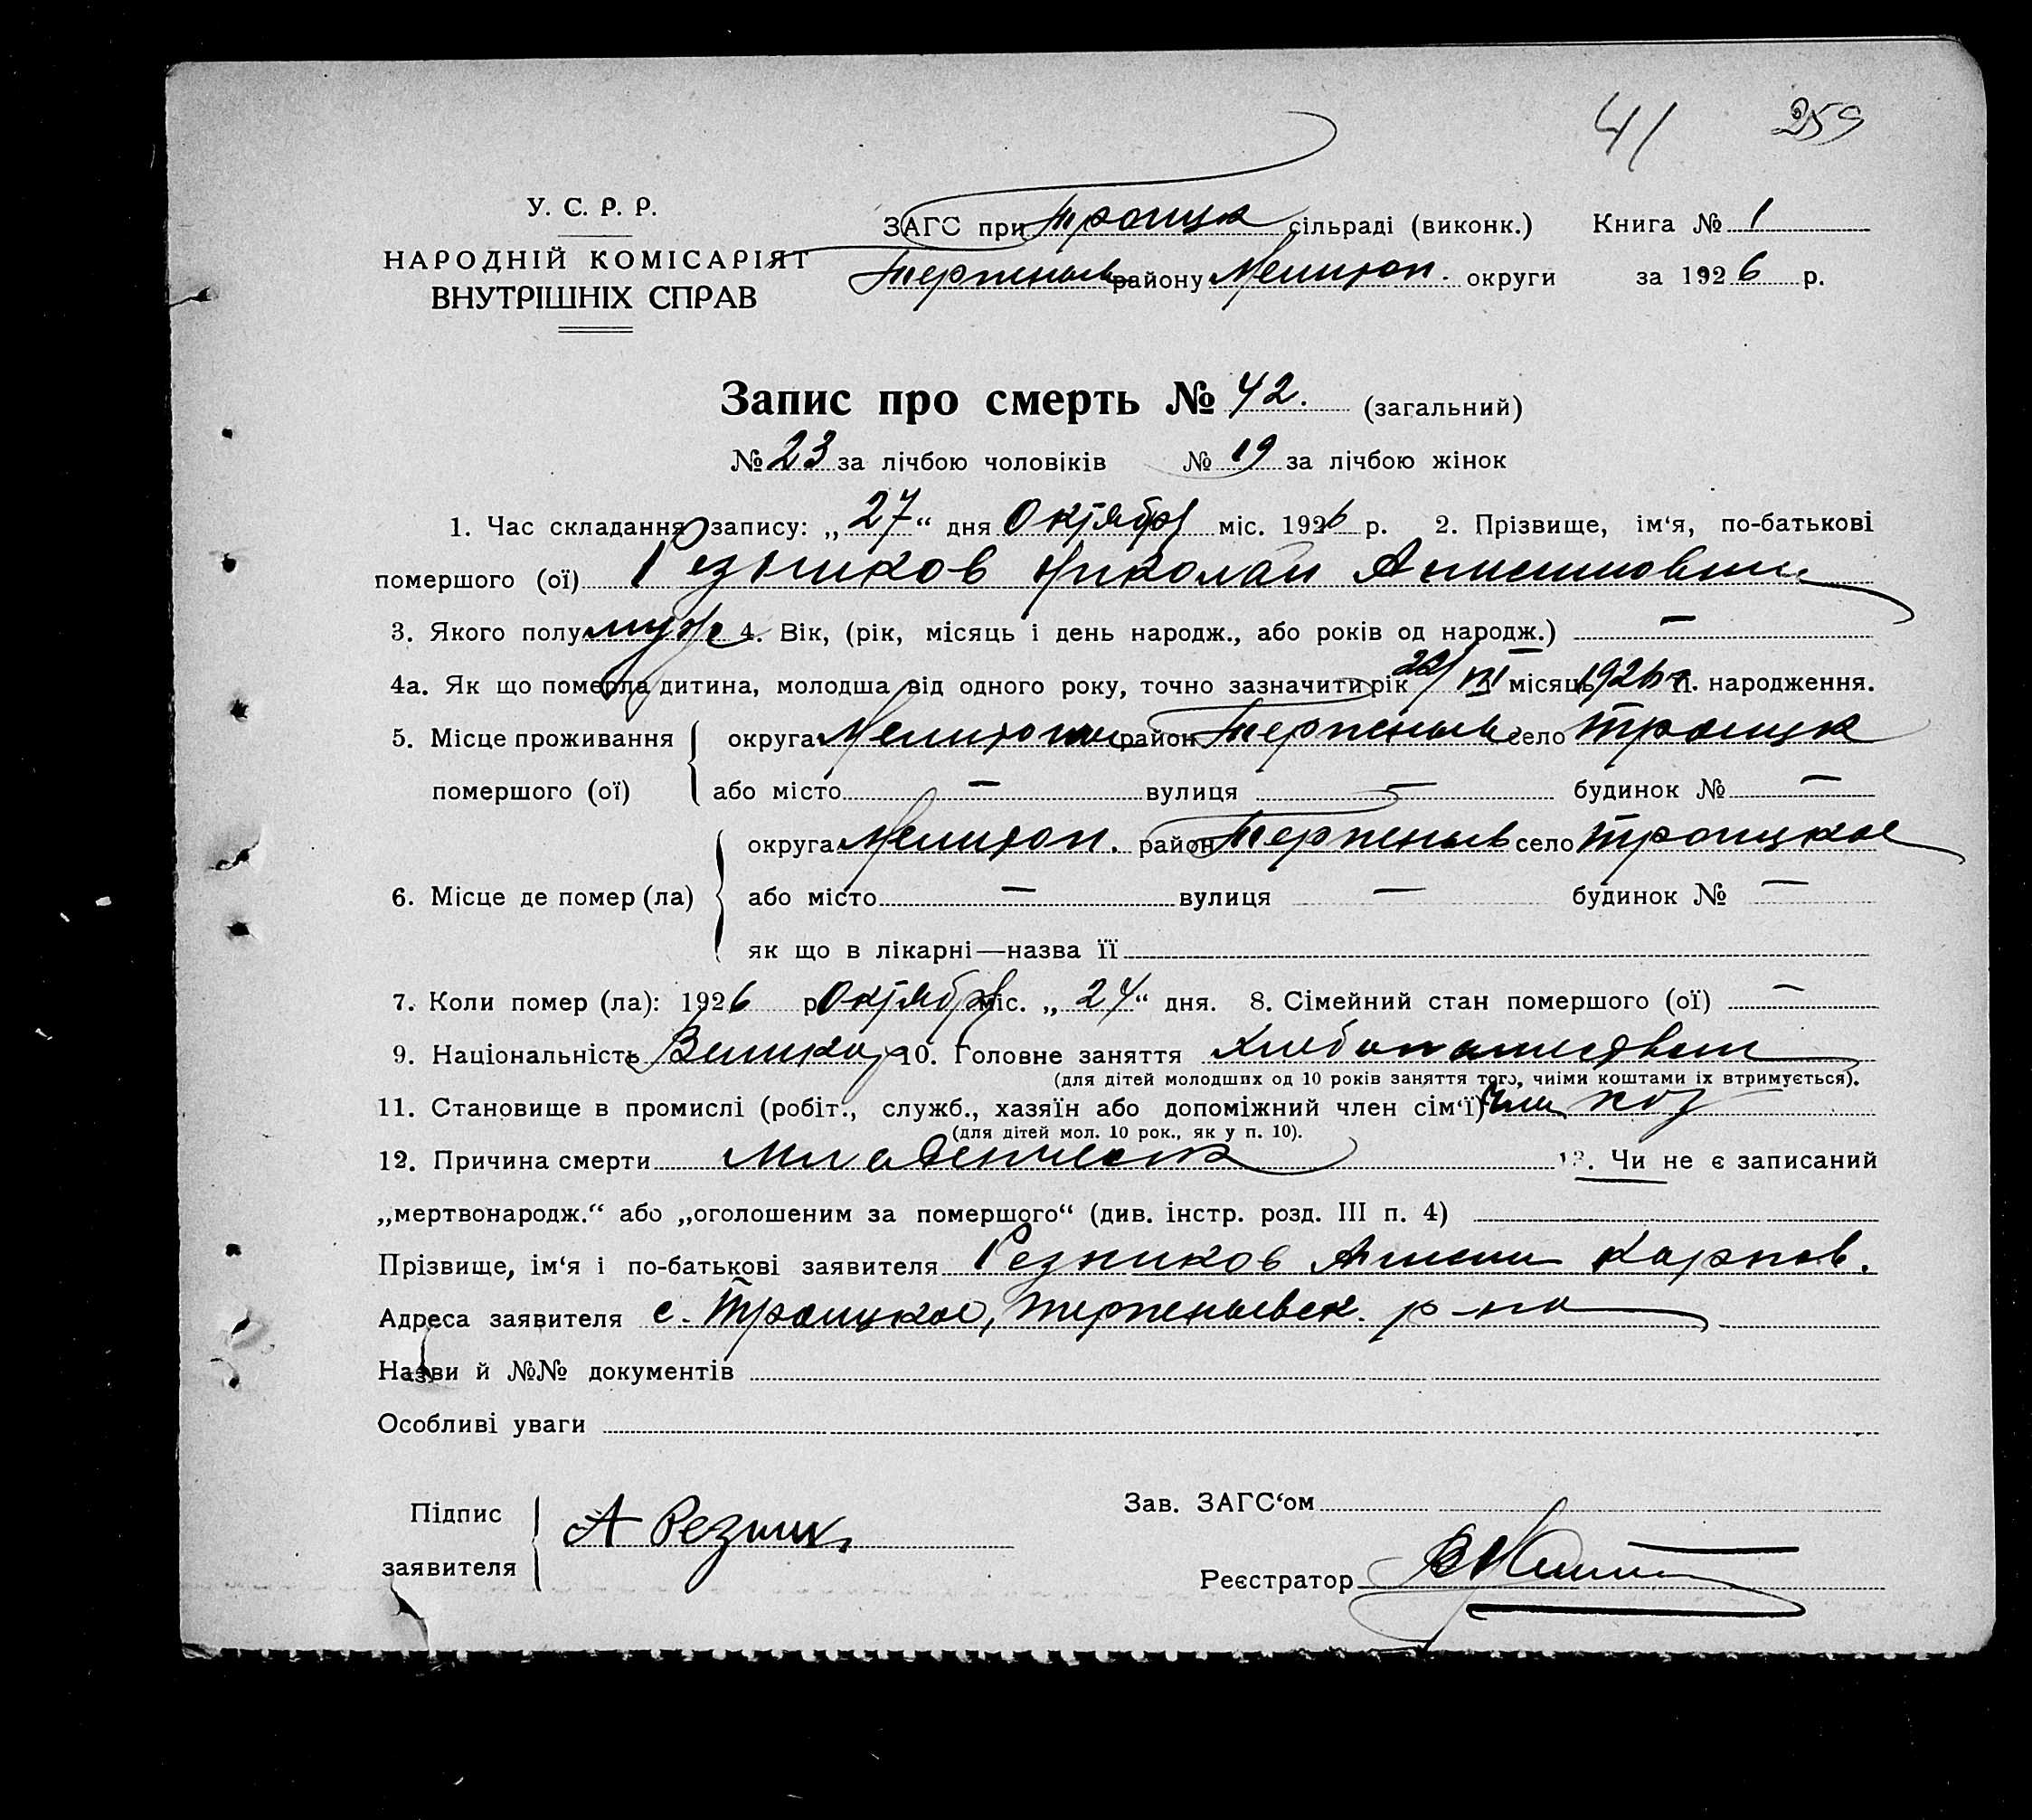 41 259
У. С. Р. Р.
НАРОДНІЙ КОМІСАРІЯТ
ВНУТРІШНІХ СПРАВ
ЗАГС при Троицк сільраді (виконк.) Книга № 1
Терпеньев району Мелитоп. округи за 1926 р.
Запис про смерть № 42. (загальний)
№ 23 за лічбою чоловіків № 19 за лічбою жінок
1. Час складання запису: „27“ дня Октября міс. 1926 р. 2. Прізвище, ім‘я, по-батькові
помершого (ої) Резников Николай Анисимович
3. Якого полу муж 4. Вік, (рік, місяць і день народж., або років од народж.) —
4а. Як що померла дитина, молодша від одного року, точно зазначити рік 22/ місяць 1926 г. народження.
5. Місце проживання округа Мелитоп район Терпеньев село Троицк
помершого (ої) або місто — вулиця — будинок № —
округа Мелитоп. район Терпеньев село Троицкое
6. Місце де помер (ла) або місто — вулиця — будинок № —
як що в лікарні—назва її
7. Коли помер (ла): 1926 р Октября міс. „24“ дня. 8. Сімейний стан помершого (ої) —
9. Національність Великор 10. Головне заняття Хлебопашество
(для дітей молодших од 10 років заняття того, чиїми коштами їх втримується).
11. Становище в промислі (робіт., служб., хазяїн або допоміжний член сім‘ї) хоз
(для дітей мол. 10 рок., як у п. 10).
12. Причина смерти Младенческ 13. Чи не є записаний
„мертвонародж.“ або „оголошеним за помершого“ (див. інстр. розд. III п. 4)
Прізвище, ім‘я і по-батькові заявителя Резников Анисим Карпов.
Адреса заявителя с. Троицкое, Терпеньевск. р-на
Назви й №№ документів
Особливі уваги
Підпис Зав. ЗАГС‘ом
А Резник
заявителя Реєстратор